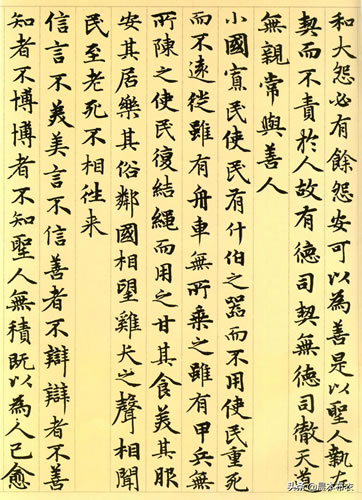 和大怨必有餘怨安可以為善是以聖人執左
契而不責於人故有德司契無德司徹天道
無親常與善人
小國寡民使民有什伯之器而不用使民重死
而不遠徙雖有舟車無所乘之雖有甲兵無
所陳之使民復結繩而用之甘其食美其服
安其居樂其俗鄰國相望雞犬之聲相聞
民至老死不相往来
信言不美美言不信善者不辯辯者不善
知者不博博者不知聖人無積既以為人己愈
头条